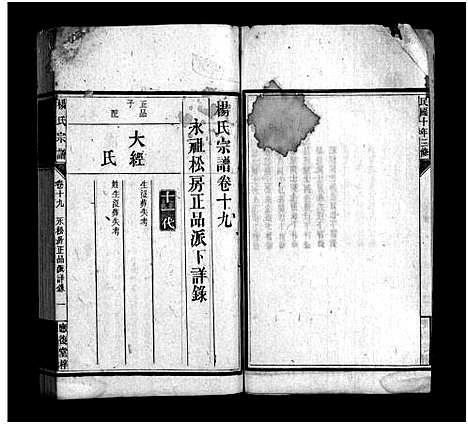 民國十年三修
楊氏宗譜卷十九
永祉松房正品派下詳錄
十一代
正品
子
大經
生歿葬失考
配
氏
姓生歿葬失考
楊氏宗譜
卷十九
松房正品派詳錄
一